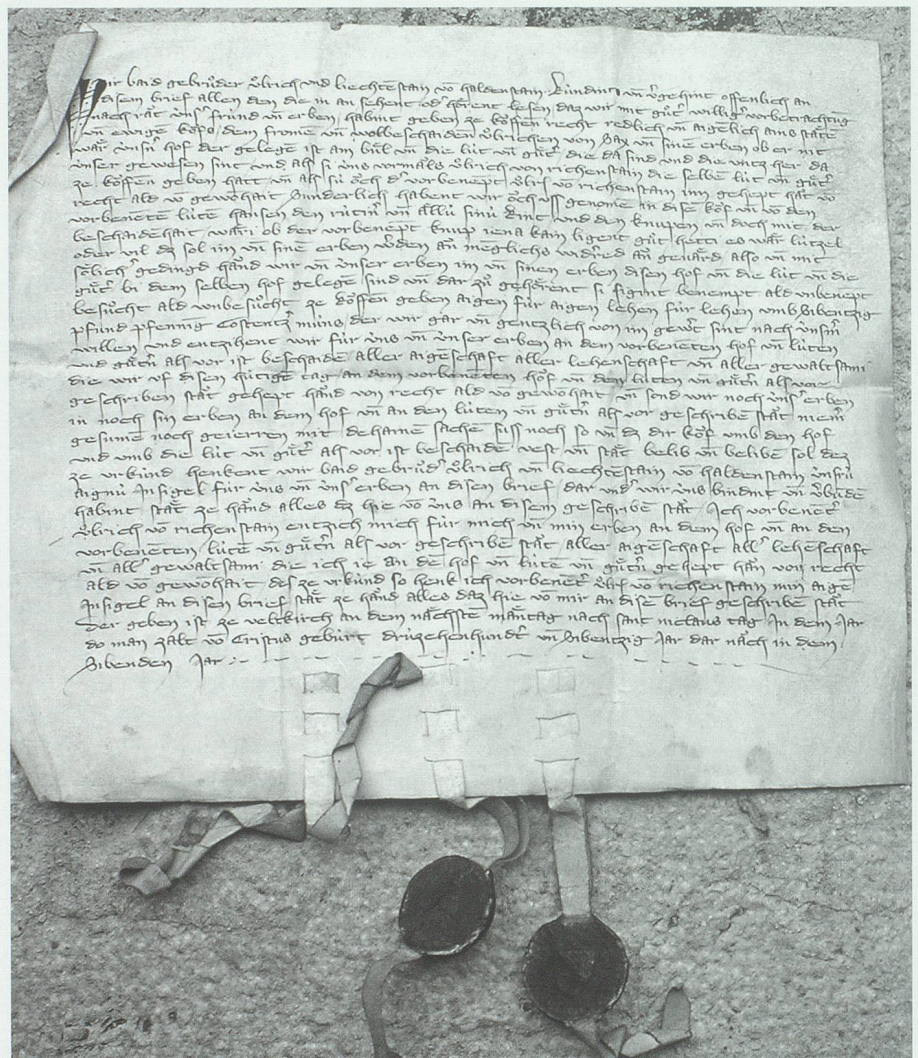 Wir baid gebrůder Ůlrich vnd liechtēstain vō haldenstain kündint vn̄ vergehint offenlich an
disem brief allen den die in an sehent od' hörent lesen daz wir mit gůt' willig' vorbetrachtūg
nach rāt vns' fründ vn̄ erben habint geben ze köffen recht redlich vn̄ aigēlich ains stātē
vn̄ ewigē köfs dem fromē vn̄ wolbeschaiden Ůlrichen von Sax vn̄ sinē erben ob er nit
wār vnsn̄ hof der gelegē ist am bůl vn̄ die lüt vn̄ gůt' die da sind vnd die vntz her da
vnser gewesen sint vnd als si vns vormāls Ůlrich von richenstain die selbē lüt vn̄ gůt'
ze köffen geben hatt vn̄ als sü öch d' vorbenēpt Ůlr' vō richenstain inn gehept hāt vō
recht ald vō gewohait Sunderlich habent wir öch vss genomē in disē köf vn̄ vō den
vorbenētē lütē hansen den rütin' vn̄ allü sinü kint vnd den knupen vn̄ doch mit der
beschaidēhait wāri ob der vorbenēpt knup iena kain ligent gůt hetti es wār lützel
oder vil dz sol im vn̄ sinē erben wden an mēglichs widred an geuārd also vn̄ mit
sēlich' gedingd hānd wir vn̄ vnser erben im vn̄ sinen erben disen hof vn̄ die lüt vn̄ die
gůt' bi dem selben hof gelegē sind vn̄ dar zů gehōrent si sigint benempt ald vnbenēpt
besůcht ald vnbesůcht ze köffen geben aigen für aigen lehen für lehen vmb Sibentzig
pfund pfennig Costentz' müns der wir gar vn̄ gentzlich von im gew't sint nach vnsm̄
willen vnd entzihent wir für vns vn̄ vnser erben an dem vorbenēten hof vn̄ lüten
vnd gůtn̄ als vor ist beschaidē aller aigēschaft aller lehenschaft vn̄ aller gewaltsami
die wir vf disen hütigē tag an dem vorbenēten hof vn̄ den lüten vn̄ gůtn̄ als vor
geschriben stāt gehept hānd von recht ald vō gewohait vn̄ send wir noch vns' erben
in noch sin erben an dem hof vn̄ an den lüten vn̄ gůtn̄ als vor geschribē stāt niem'
gesumē noch geierren mit dehainē sachē suss noch so vn̄ dz dir köf vmb den hof
vnd vmb die lüt vn̄ gůt' als vor ist beschaidē vest vn̄ stāt belib vn̄ belibē sol dez
ze vrkünd henkent wir baid gebrůd' Ůlrich vn̄ liechtēstain vō haldenstain vnsrü
aignü Insigel für vns vn̄ vns' erben an disen brief dar vnd' wir vns bindint vn̄ v'bundē
habint stāt ze hānd alles dz hie vō vns an disem geschribē stāt Ich vorbenēt'
Ůlrich vō richenstain entzich mich für mich vn̄ min erben an dem hof vn̄ an den
vorbenēten lütē vn̄ gůtn̄ als vor geschribē stāt aller aigēschaft all' lehēschaft
vn̄ all' gewaltsami die ich ie an dē hof vn̄ lütē vn̄ gůtn̄ gehept hān von recht
ald vō gewohait des ze vrkünd so henk ich vorbenēt' Ůlr' vō richenstain min aigē
Insigel an disen brief stāt ze hānd alles daz hie vō mir an disē brief geschribē stāt
Der geben ist ze veltkirch an dem nāchstē māntag nach sant niclaus tag In dem Jar
do man zalt vō Cristus gebürt drüzehenhundt' vn̄ Sibentzig Jar dar nāch in dem
Sibenden Jar